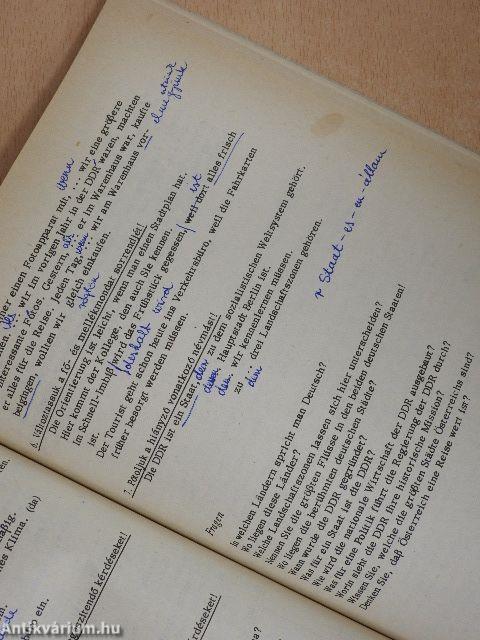 mer einen Fotoapparat mit, wenn wir eine größere
wir im vorigen Jahr in der DDR waren, machten
interessante Fotos. Gestern, als er im Warenhaus war, kaufte
er alles für die Reise. Jeden Tag, wir am Warenhaus vor-
beigehen, wollten wir gleich einkaufen.
6. Változtassuk a fő- és mellékmondat sorrendjét!
Die Orientierung ist leicht, wenn man einen Stadtplan hat.
Hier kommt der Kollege, den auch Sie kennen.
Im Schnell-Imbiß wird das Frühstück gegessen, weil dort alles frisch
ist.
Der Tourist geht schon heute ins Verkehrsbüro, weil die Fahrkarten
früher besorgt werden müssen.
deshalb wird
ist
7. Pótoljuk a hiányzó vonatkozó névmást!
Die DDR ist ein Staat, der zu dem sozialistischen Weltsystem gehört.
deren Hauptstadt Berlin ist.
den wir kennenlernen müssen.
zu dem drei Landschaftszonen gehören.
r Staat-es-en-állam
Fragen
In welchen Ländern spricht man Deutsch?
Wo liegen diese Länder?
Welche Landschaftszonen lassen sich hier unterscheiden?
Nennen Sie die größten Flüsse in den beiden deutschen Staaten!
Wo liegen die berühmten deutschen Städte?
Wann wurde die DDR gegründet?
Was für ein Staat ist die DDR?
Wie wird die nationale Wirtschaft der DDR ausgebaut?
Was für eine Politik führt die Regierung der DDR durch?
Worin sieht die DDR ihre historische Mission?
Wissen Sie, welche die größten Städte Österreichs sind?
Denken Sie, daß Österreich eine Reise wert ist?
äßig.
es Klima. (da)
ein.
kérdéseket!
Antikvárium.hu